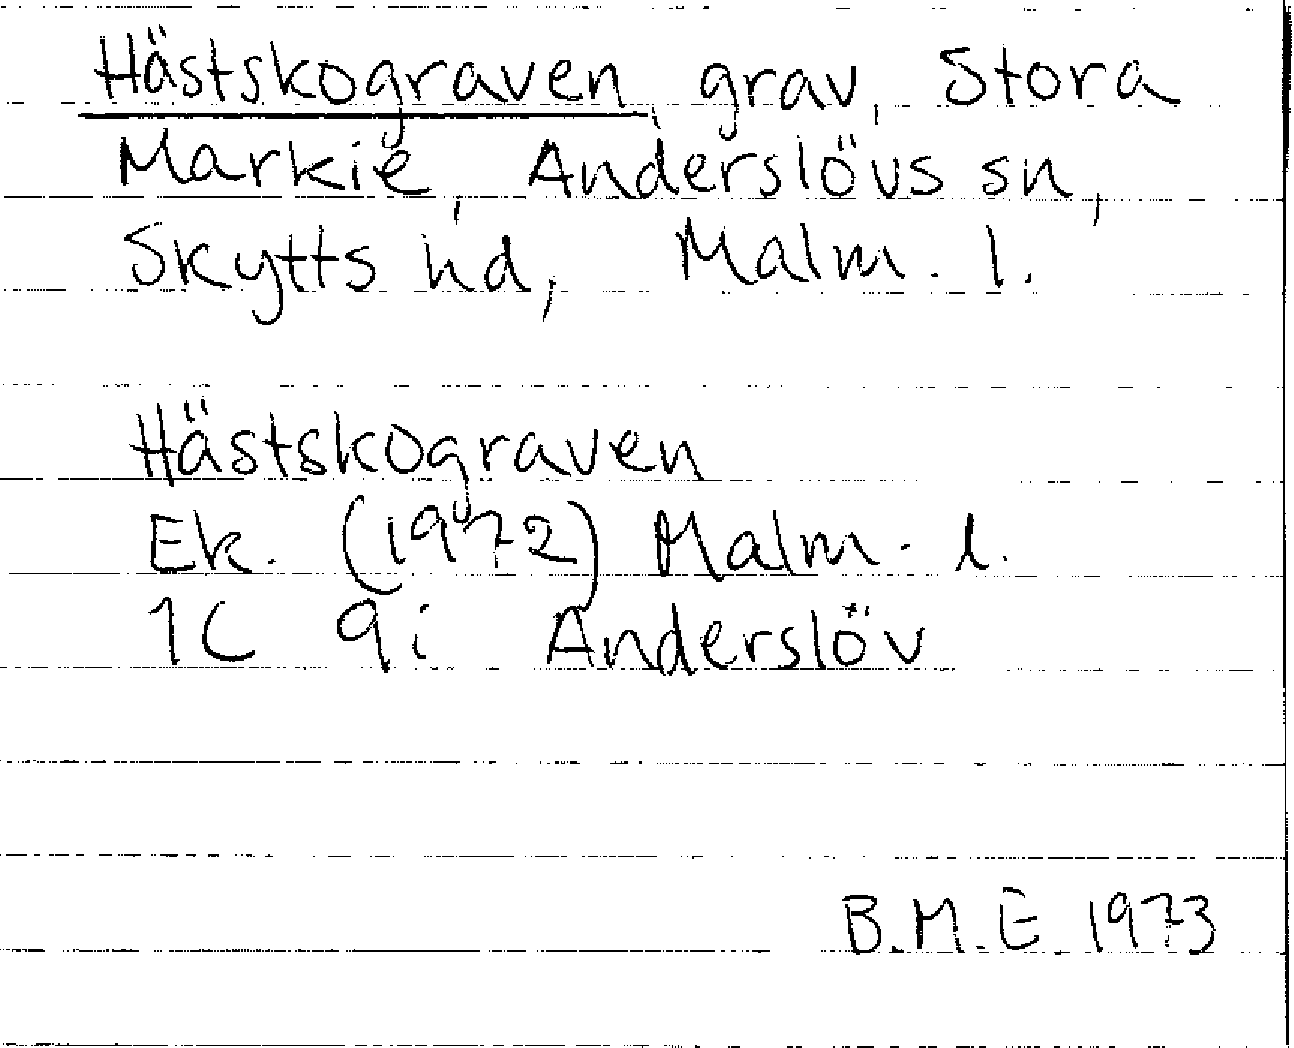 Hästskograven, grav, Stora
Markie, Anderslövs sn,
Skytts hd, Malm. l.
Hästskograven
Ek. (1972) Malm. l.
1C 9i Anderslöv
B.M.E. 1973